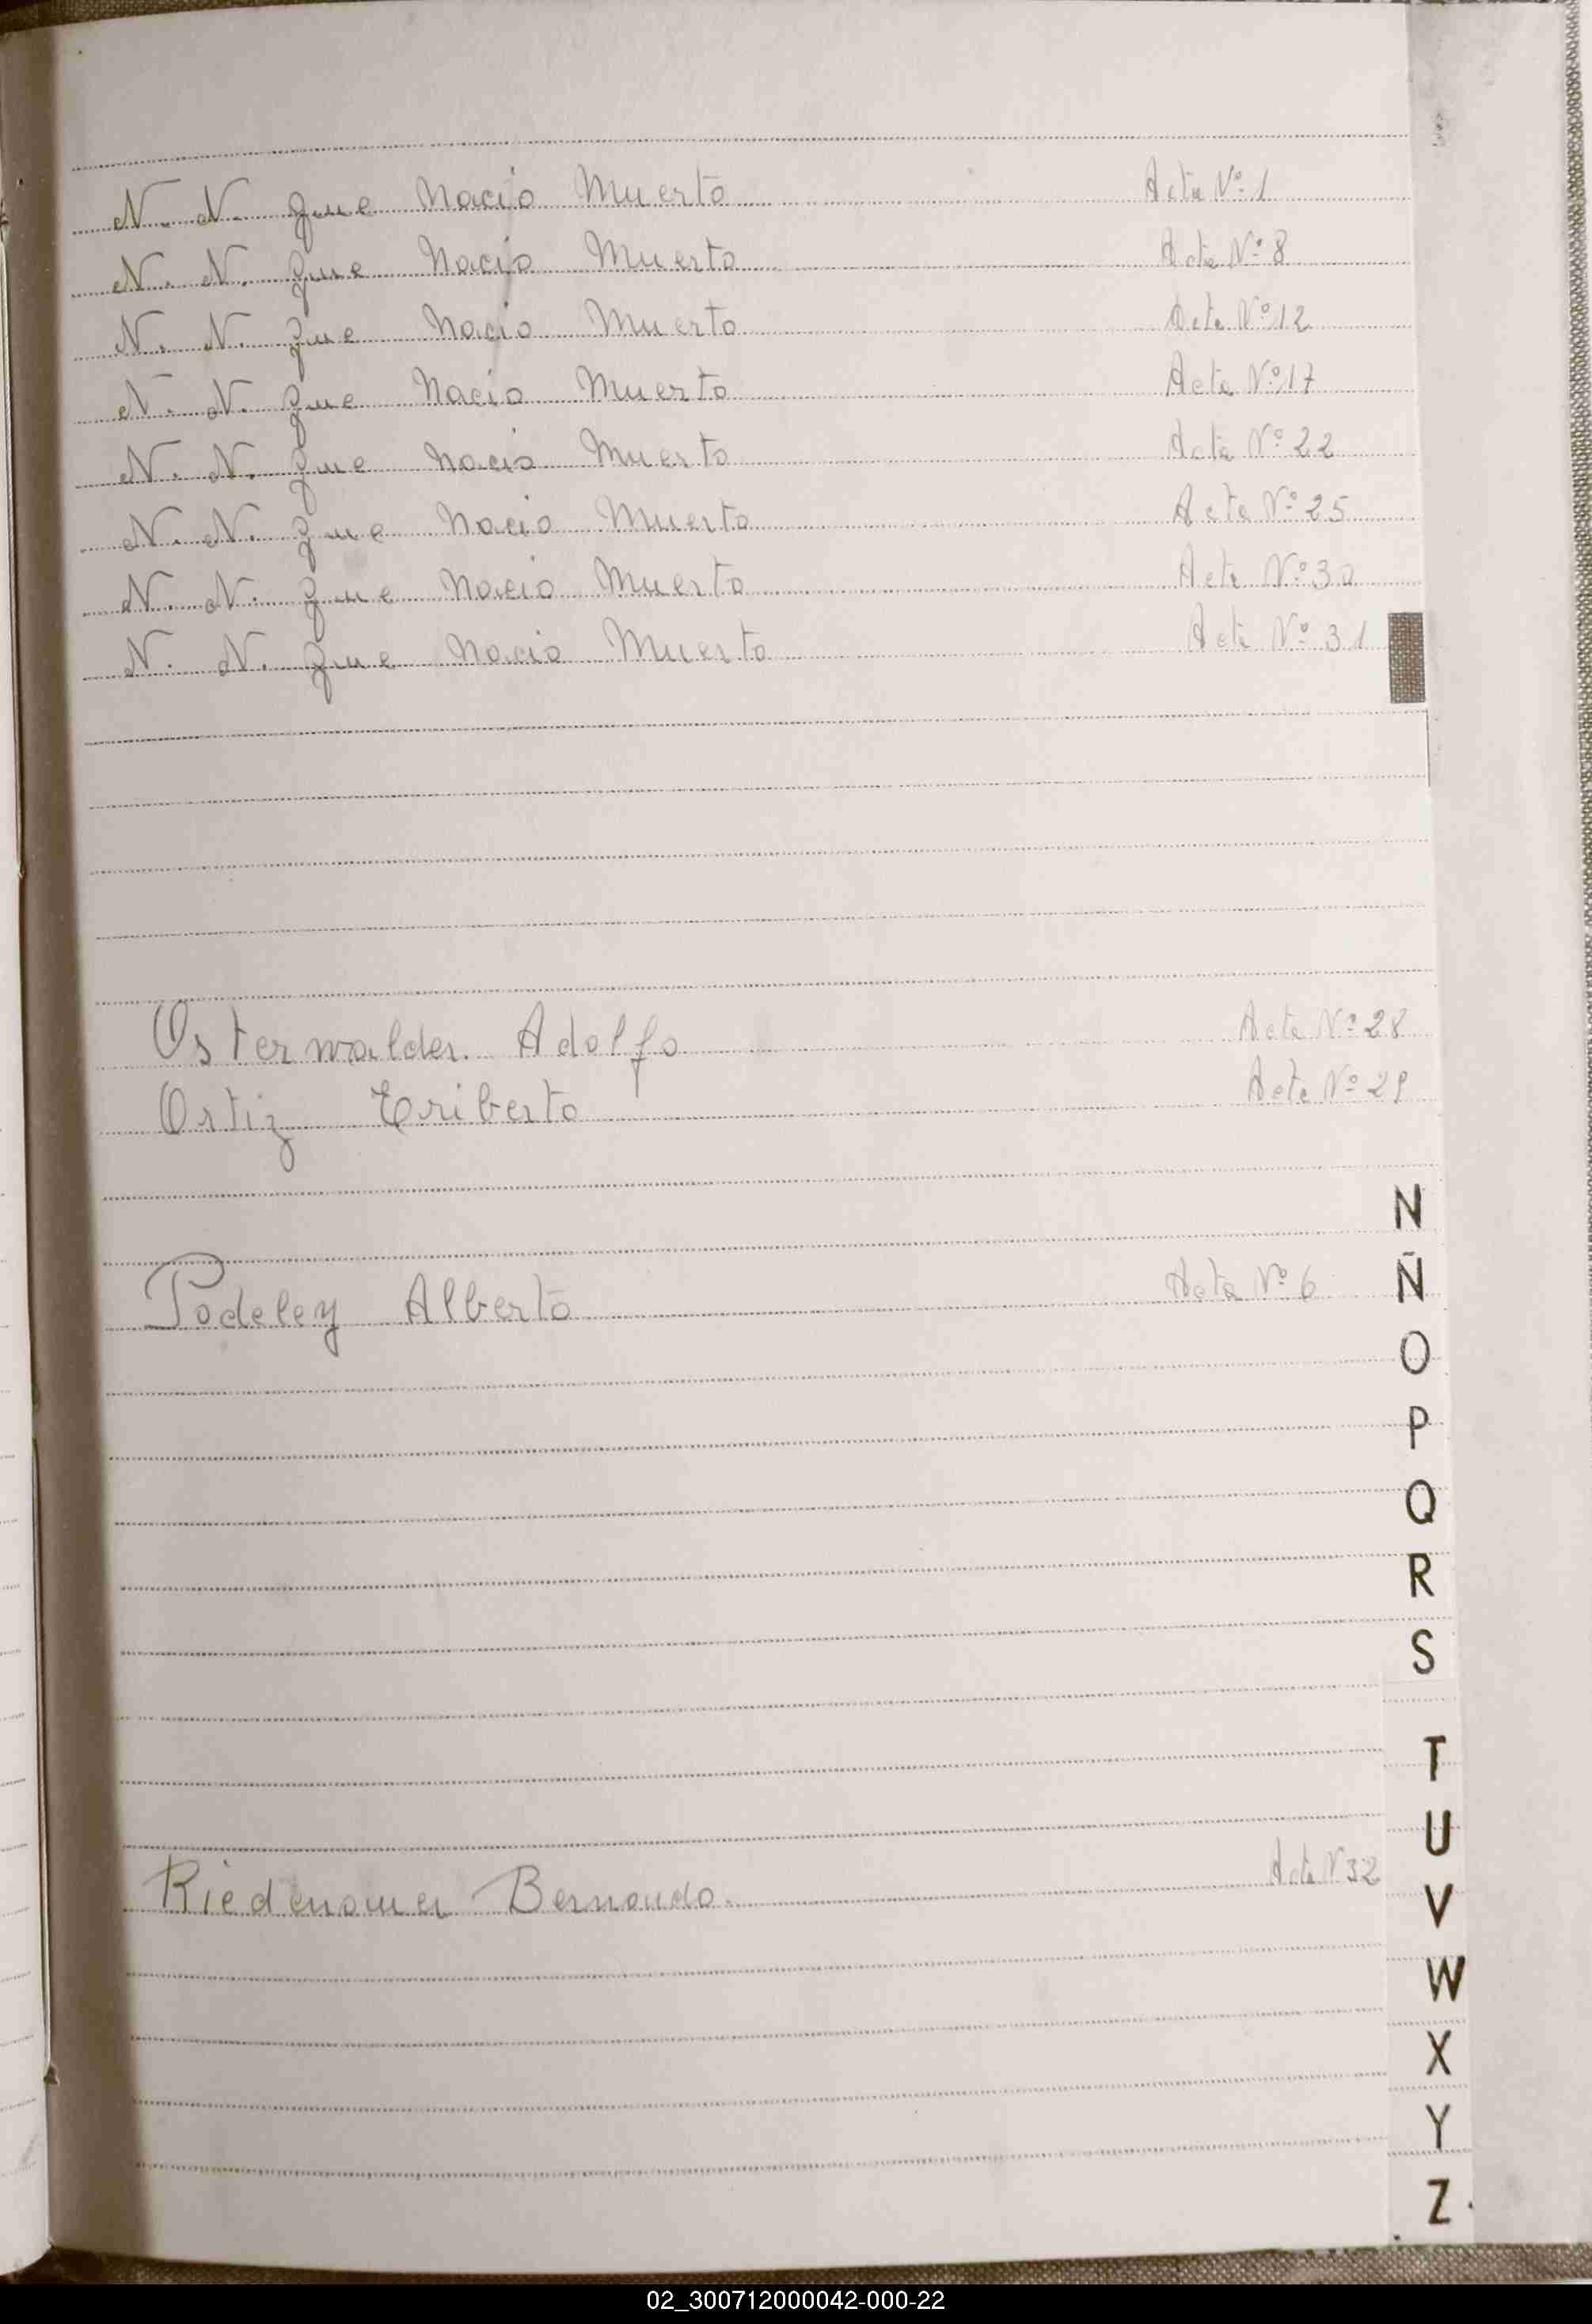 N. N. que Nacio Muerto Acta Nº 1
N. N. que Nacio Muerto Acta Nº 8
N. N. que Nacio Muerto Acta Nº 12
N. N. que Nacio Muerto Acta Nº 17
N. N. que Nacio Muerto Acta Nº 22
N. N. que Nacio Muerto Acta Nº 25
N. N. que Nacio Muerto Acta Nº 30
N. N. que Nacio Muerto Acta Nº 31
Osterwalder. Adolfo Acta Nº 28
Ortiz Eriberto Acta Nº 29
N
Podeley Alberto Acta Nº 6
Ñ
O
P
Q
R
S
T
U
Bernardo. Acta Nº 32
V
W
X
Y
Z
02_300712000042-000-22